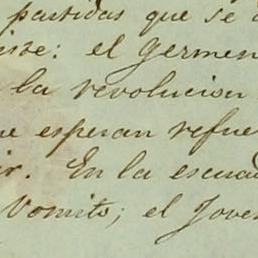 partidas que se
: el germen
la revolucion
esperan refue
ir. En la escuad
Vomito; el Jove